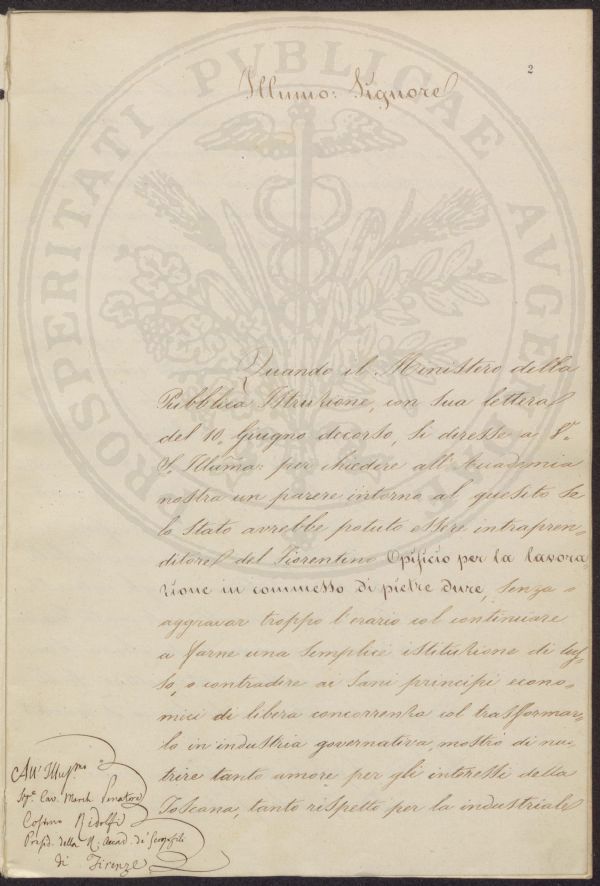 2
Illumo: Signore
PROSPERITATI PVBLICAE AVGENDAE
Quando il Ministero della
Pubblica Istruzione, con sua lettera
del 10. Giugno decorso, si diresse a
S. Illma: per chiedere all'Accademia
nostra un parere intorno al quesito se
lo Stato avrebbe potuto essere intrapren-
ditore del Fiorentino Opificio per la lavora-
zione in commesso di pietre dure, senza o
aggravar troppo l'erario col continuare
a farne una semplice istituzione di lus-
so, o contradire ai sani principi econo-
mici di libera concorrenza col trasformar-
lo in industria governativa, mostrò di nu-
trire tanto amore per gli interessi della
Toscana, tanto rispetto per la industriale
All' Illusmo
Sigr. Cav. March. Senatore
Cosimo Ridolfi
Presid. della R. Accad. de' Georgofili
di Firenze